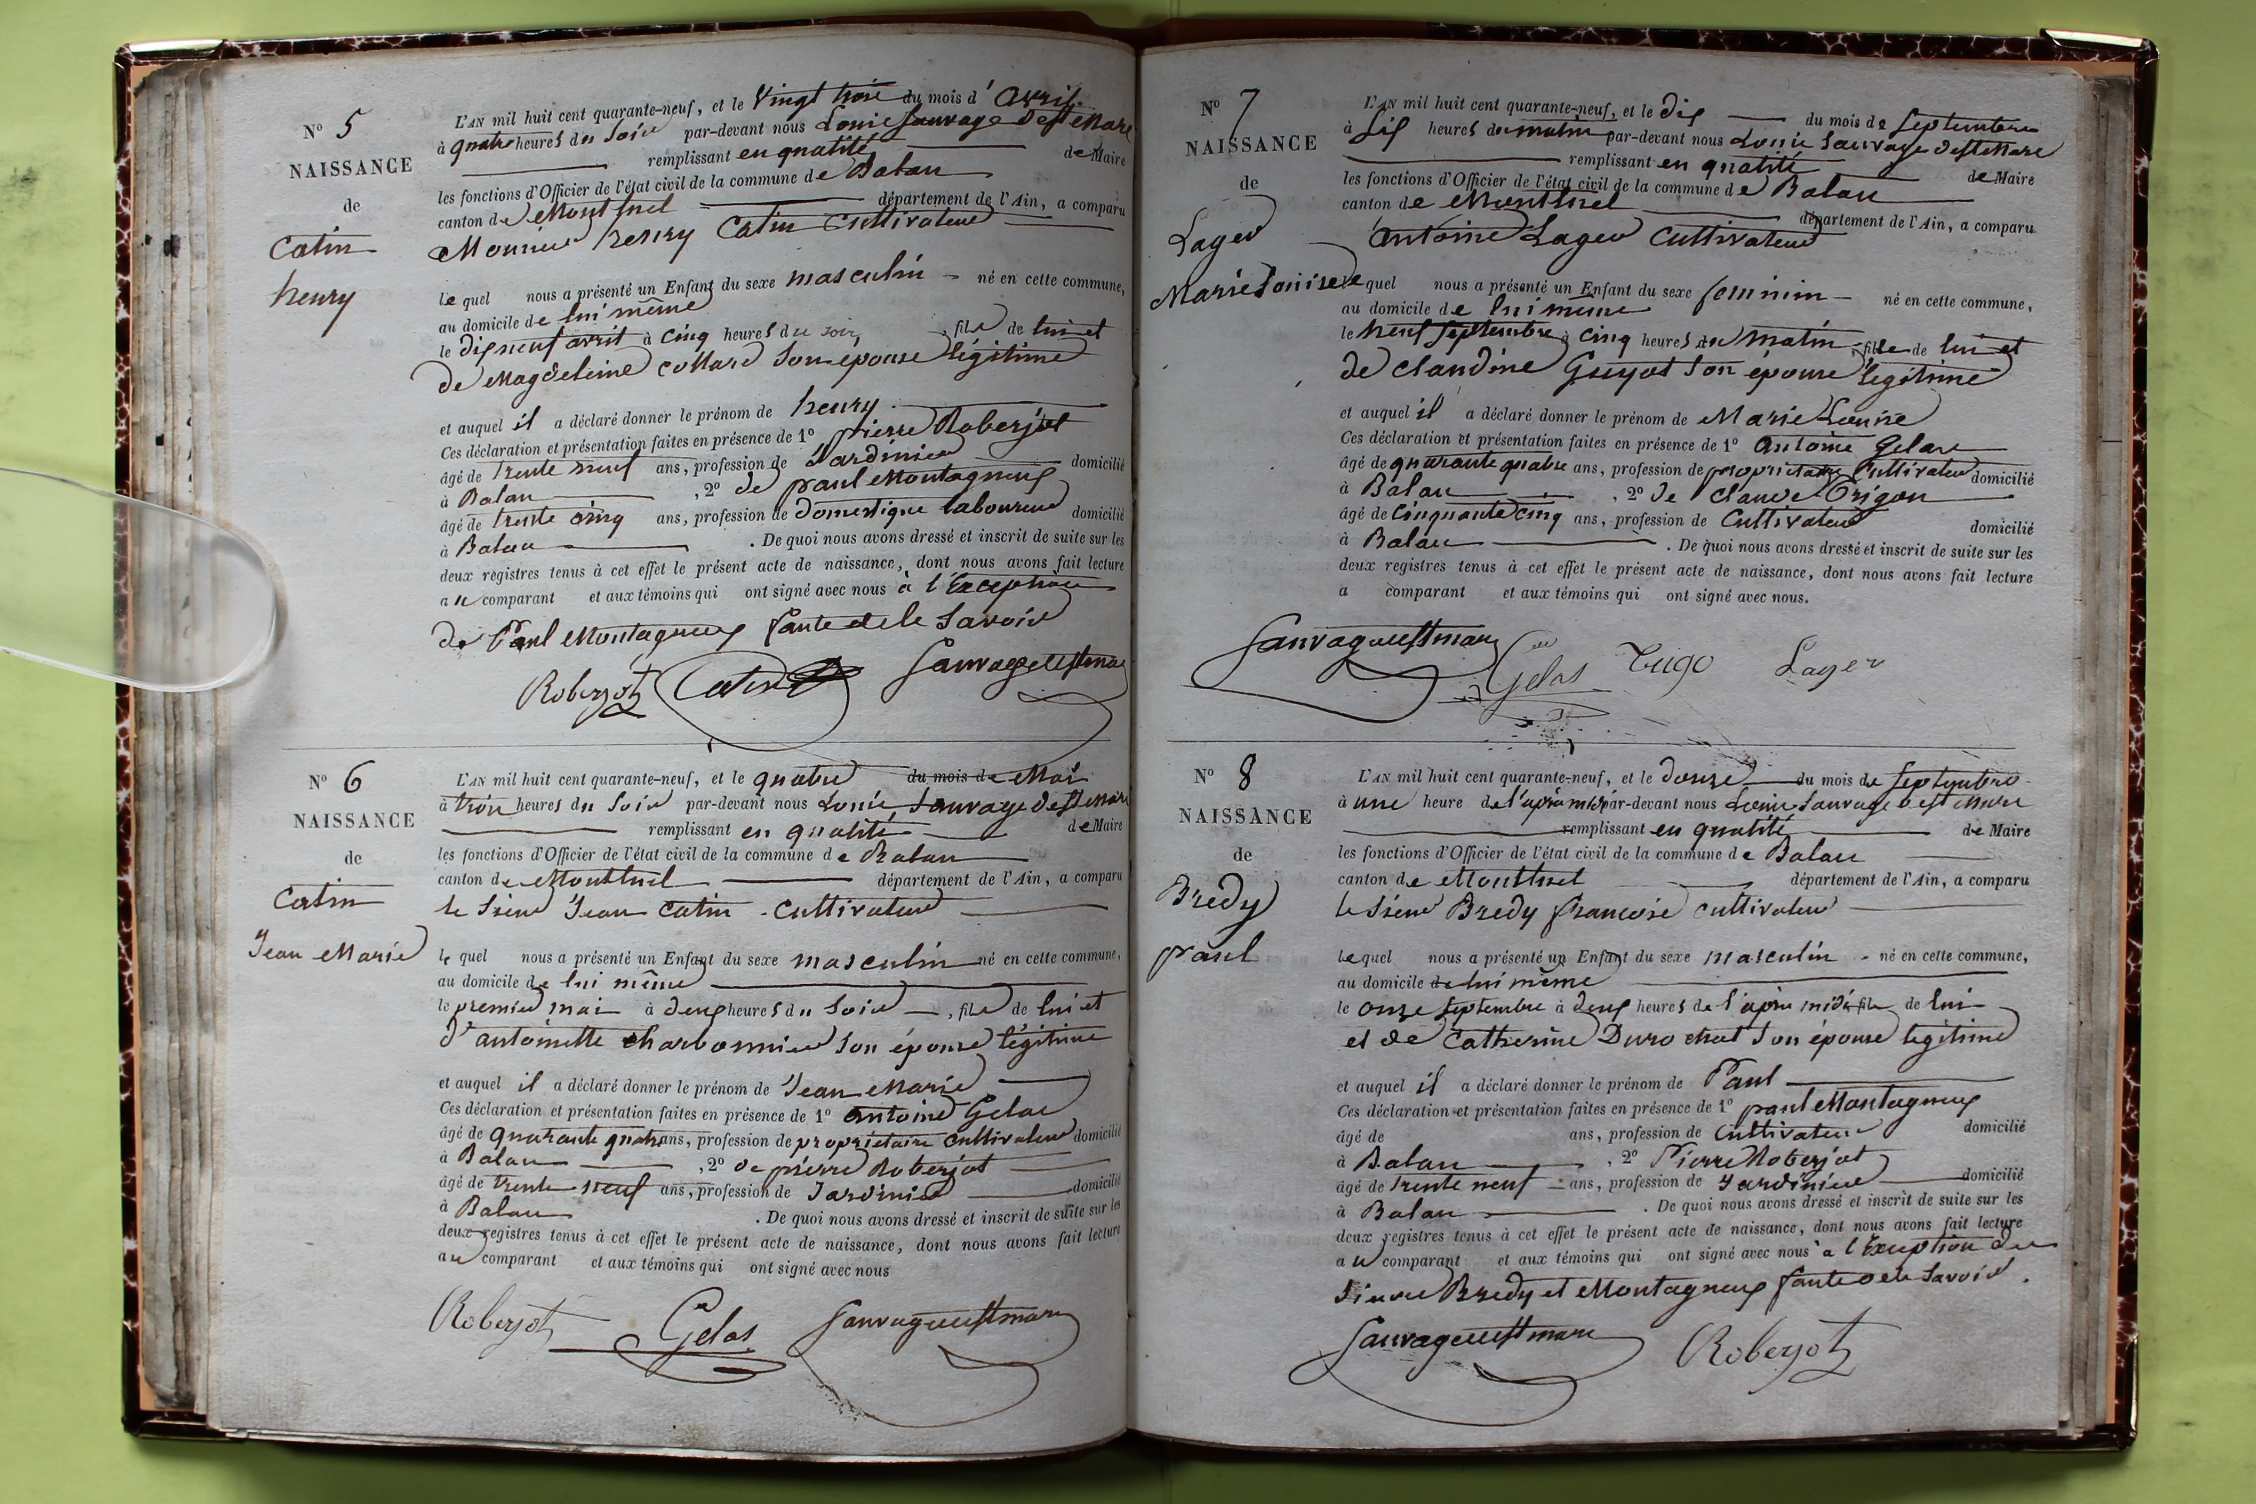 N° 5
NAISSANCE
de
Catin
henry
L'AN mil huit cent quarante-neuf, et le Vingt trois du mois d'avril
à quatre heures du Soir par-devant nous Louis Sauvage destMare
remplissant en qualité de Maire
les fonctions d'Officier de l'état civil de la commune de Balan
canton de Montluel département de l'Ain, a comparu
Monsieur henry Catin Cultivateur
le quel nous a présenté un Enfant du sexe masculin né en cette commune,
au domicile de lui même
le dix neuf avril à cinq heures du soir, fils de lui et
de Magdeleine collard Son épouse légitime
et auquel il a déclaré donner le prénom de henry
Ces déclaration et présentation faites en présence de 1° pierre Roberjot
âgé de trente neuf ans, profession de Jardinier domicilié
à Balan , 2° de paul Montagneux
âgé de trente cinq ans, profession de domestique laboureur domicilié
à Balan . De quoi nous avons dressé et inscrit de suite sur les
deux registres tenus à cet effet le présent acte de naissance, dont nous avons fait lecture
au comparant et aux témoins qui ont signé avec nous à l'Exception
de Paul Montagneux faute de le Savoir
Roberjot Catin Sauvagedestmare
N° 6
NAISSANCE
de
Catin
Jean Marie
L'AN mil huit cent quarante-neuf, et le quatre du mois de Mai
à trois heures du Soir par-devant nous Louis Sauvage destMare
remplissant en qualité de Maire
les fonctions d'Officier de l'état civil de la commune de Balan
canton de Montluel département de l'Ain, a comparu
le Sieur Jean Catin Cultivateur
le quel nous a présenté un Enfant du sexe masculin né en cette commune,
au domicile de lui même
le premier mai à deux heures du Soir, fils de lui et
d'antoinette charbonnier Son épouse légitime
et auquel il a déclaré donner le prénom de Jean Marie
Ces déclaration et présentation faites en présence de 1° antoine Gelas
âgé de quarante quatre ans, profession de propriétaire Cultivateur domicilié
à Balan , 2° de pierre Roberjot
âgé de trente neuf ans, profession de Jardinier domicilié
à Balan . De quoi nous avons dressé et inscrit de suite sur les
deux registres tenus à cet effet le présent acte de naissance, dont nous avons fait lecture
au comparant et aux témoins qui ont signé avec nous
Roberjot Gelas Sauvagedestmare
N° 7
NAISSANCE
de
Lager
Marie Louise
L'AN mil huit cent quarante-neuf, et le dix du mois de Septembre
à Six heures du matin par-devant nous Louis Sauvage destMare
remplissant en qualité de Maire
les fonctions d'Officier de l'état civil de la commune de Balan
canton de Montluel département de l'Ain, a comparu
antoine Lager Cultivateur
le quel nous a présenté un Enfant du sexe feminin né en cette commune,
au domicile de lui même
le neuf Septembre à cinq heures du matin, fille de lui et
de claudine Guyot Son épouse légitime
et auquel il a déclaré donner le prénom de Marie Louise
Ces déclaration et présentation faites en présence de 1° antoine Gelas
âgé de quarante quatre ans, profession de propriétaire Cultivateur domicilié
à Balan , 2° de claude Trigon
âgé de cinquante cinq ans, profession de Cultivateur domicilié
à Balan . De quoi nous avons dressé et inscrit de suite sur les
deux registres tenus à cet effet le présent acte de naissance, dont nous avons fait lecture
a comparant et aux témoins qui ont signé avec nous.
Sauvagedestmare Gelas Lager
N° 8
NAISSANCE
de
Bredy
paul
L'AN mil huit cent quarante-neuf, et le douze du mois de Septembre
à une heure de l'après midi par-devant nous Louis Sauvage destMare
remplissant en qualité de Maire
les fonctions d'Officier de l'état civil de la commune de Balan
canton de Montluel département de l'Ain, a comparu
le Sieur Bredy francois cultivateur
le quel nous a présenté un Enfant du sexe masculin né en cette commune,
au domicile de lui même
le onze Septembre à deux heures de l'après midi fils de lui
et de Catherine Durochat Son épouse legitime
et auquel il a déclaré donner le prénom de Paul
Ces déclaration et présentation faites en présence de 1° paul Montagneux
âgé de ans, profession de Cultivateur domicilié
à Balan , 2° Pierre Roberjot
âgé de trente neuf ans, profession de Jardinier domicilié
à Balan . De quoi nous avons dressé et inscrit de suite sur les
deux registres tenus à cet effet le présent acte de naissance, dont nous avons fait lecture
au comparant et aux témoins qui ont signé avec nous à l'Exception du
Sieur Bredy et Montagneux faute de le Savoir.
Sauvagedestmare Roberjot